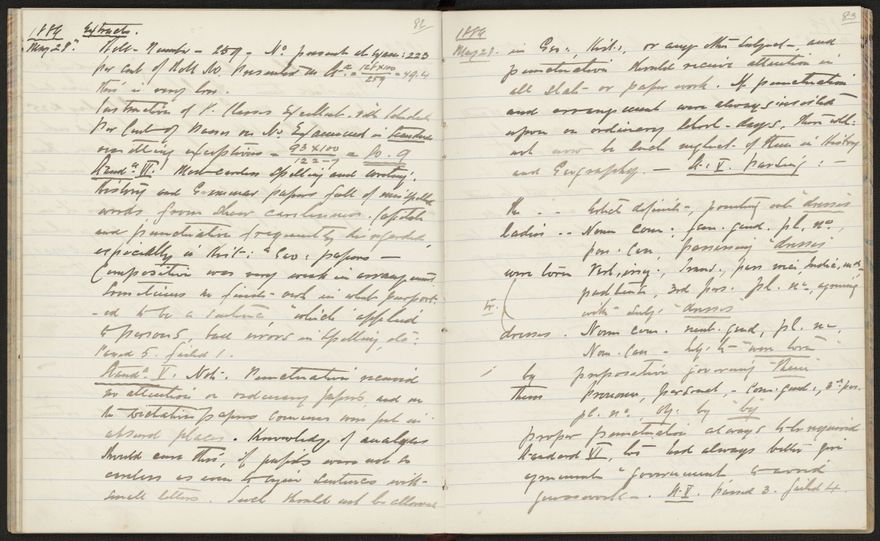 82
1886 Extracts.
May 28th. Roll - Number - 259 - No. present at Exam: 223
Per Cent of Roll No. Presented in St = 128x100/259 = 49.4
this is very low.
Instruction of P. Classes Excellent
Per Cent of Passes on No. Examined in Standards
exceptions = 93x100/122-7 = 80.9
Standd. VI. Most careless Spelling and writing,
History and Grammar papers full of misspelled
words from sheer carelessness. Capitals
and punctuation frequently disregarded,
especially in Hist: & Geo: papers —
Composition was very weak in arrangement
Sometimes no finite verb in what purport-
-ed to be a sentence, "which" applied
to persons, bad errors in Spelling etc.
Passed 5. failed 1.
Standd. V. Note. Punctuation received
no attention in ordinary papers and in
the Dictation papers Commas were put in
absurd places. Knowledge of analysis
should cure this, if pupils were not so
careless as even to begin sentences with
small letters. Such should not be allowed
83
1886
May 28. in Geo:, Hist:, or any other Subject -, and
punctuation should receive attention in
all slate - or paper work. If punctuation
and arrangement were always insisted
upon on ordinary School - days, there would
not now be such neglect of them in History
and Geography. — St. V. Parsing: —
the - - definite -, pointing out "dresses
ladies - - Noun com. fem. gend. pl. no.,
poss. Case, possessing "dresses
were torn Verb, trans., pass voice Indic. mood
past tense, 3rd pers. pl. no, agreeing
with subj: "dresses"
dresses. Noun com. neut. gend, pl. no,
Nom. Case - subj. to "were torn"
by preposition governing "them"
them Pronoun, Personal, - Com. gend:, 3rd pers.
pl. no, Obj. by "by
proper punctuation always to be required
Standard VI, had always better give
"government" to avoid
guesswork -. St. V. passed 3. failed 4.